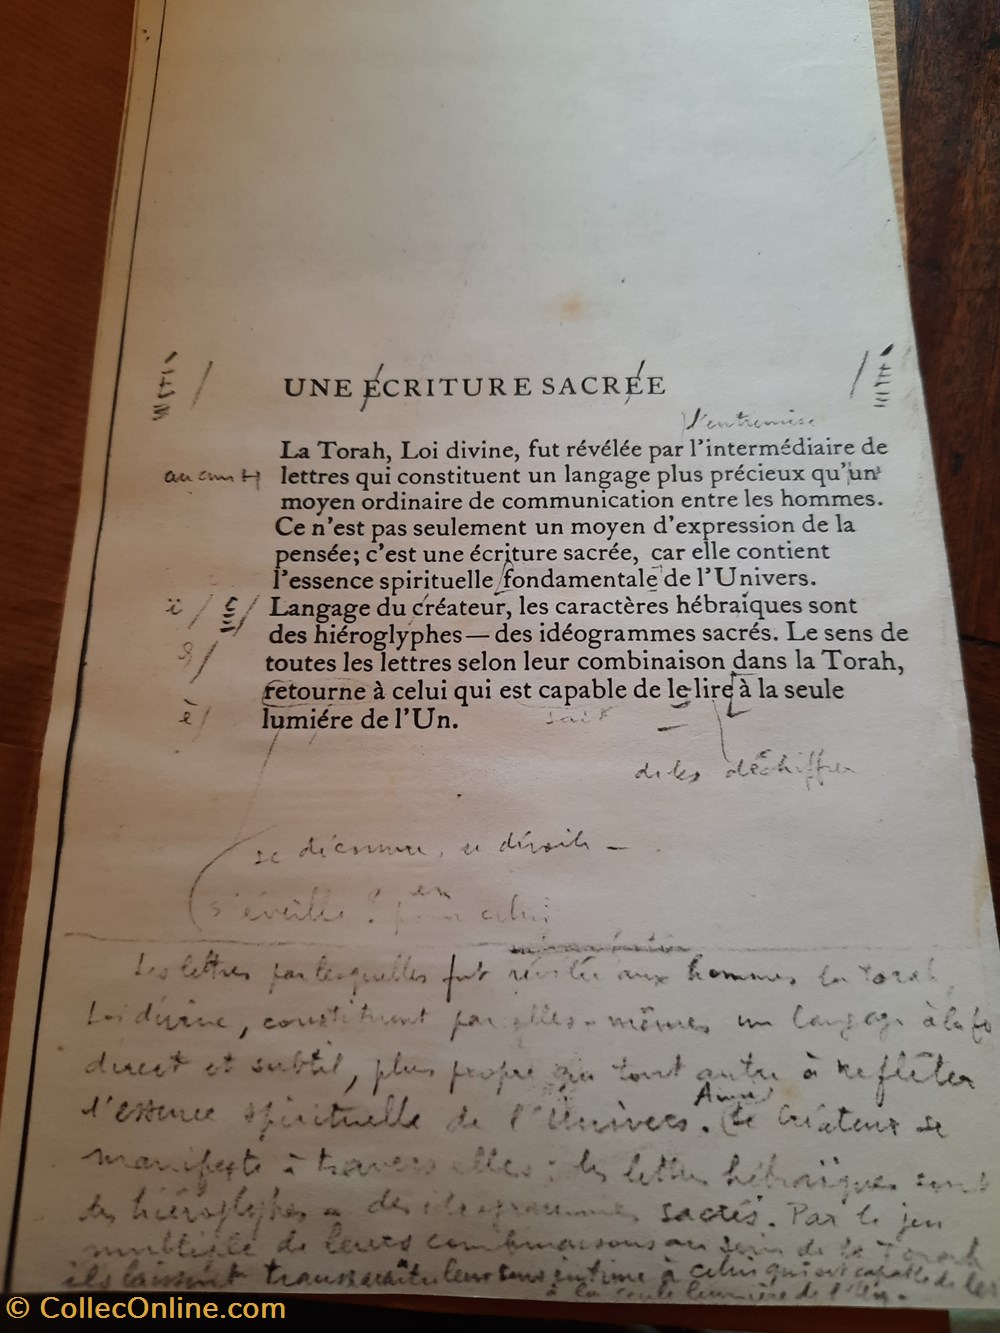 UNE ÉCRITURE SACRÉE
l'entremise
La Torah, Loi divine, fut révélée par l'intermédiaire de
lettres qui constituent un langage plus précieux qu'un
moyen ordinaire de communication entre les hommes.
Ce n'est pas seulement un moyen d'expression de la
pensée; c'est une écriture sacrée, car elle contient
l'essence spirituelle fondamentale de l'Univers.
ï / c / Langage du créateur, les caractères hébraíques sont
des hiéroglyphes — des idéogrammes sacrés. Le sens de
toutes les lettres selon leur combinaison dans la Torah,
retourne à celui qui est capable de le lire à la seule
è / lumiére de l'Un.
sait
de les déchiffrer
se découvre, se dévoile —
s'éveille? en celui
Les lettres par lesquelles fut révélée aux hommes la Torah,
Loi divine, constituent par elles-mêmes un langage à la fo
direct et subtil, plus propre que tout autre à refléter
l'essence spirituelle de l'Univers. Le Créateur se
manifeste à travers elles: les lettres hébraïques sont
des hiéroglyphes des idéogrammes sacrés. Par le jeu
multiple de leurs combinaisons au sein de la Torah
ils laissent transparaître leur sens intime à celui qui est capable de les
à la seule lumière de l'Un.
© CollecOnline.com